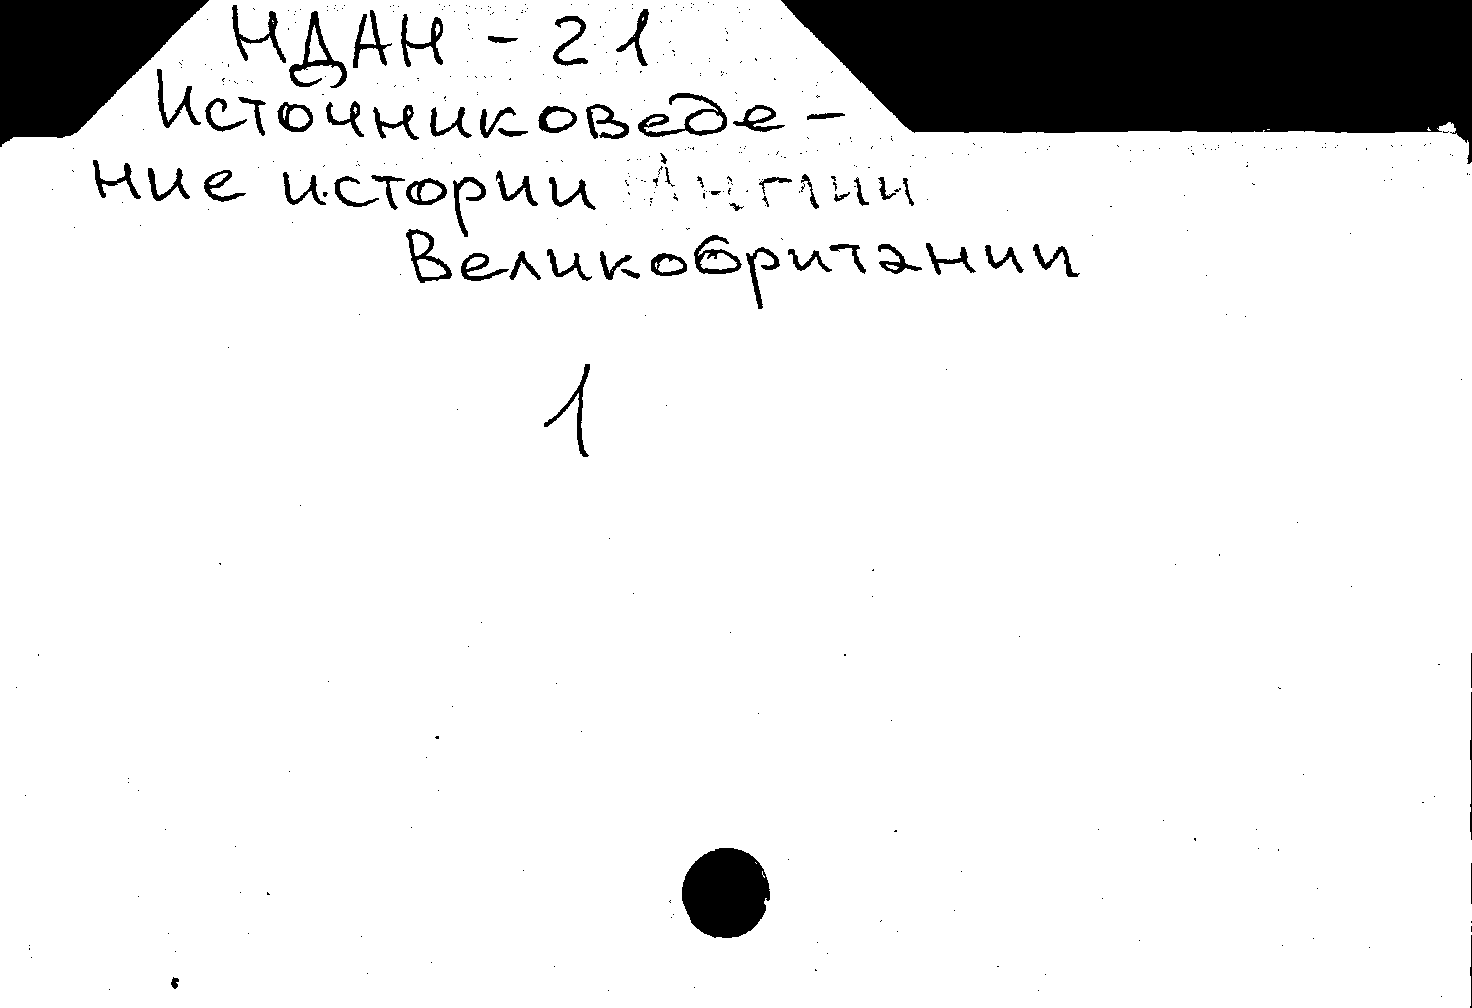 НДАН - 21
Источниковеде-
ние истории Англии
Великобритании
1